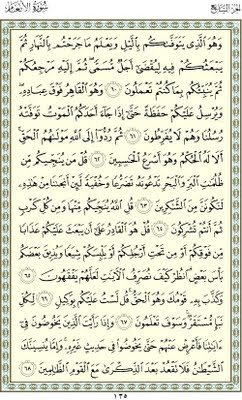 الجزء السابع
سورة الأنعام
وَهُوَ ٱلَّذِى يَتَوَفَّىٰكُم بِٱلَّيْلِ وَيَعْلَمُ مَا جَرَحْتُم بِٱلنَّهَارِ ثُمَّ
يَبْعَثُكُمْ فِيهِ لِيُقْضَىٰٓ أَجَلٌ مُّسَمًّى ثُمَّ إِلَيْهِ مَرْجِعُكُمْ
ثُمَّ يُنَبِّئُكُم بِمَا كُنتُمْ تَعْمَلُونَ ٦٠ وَهُوَ ٱلْقَاهِرُ فَوْقَ عِبَادِهِۦ
وَيُرْسِلُ عَلَيْكُمْ حَفَظَةً حَتَّىٰٓ إِذَا جَآءَ أَحَدَكُمُ ٱلْمَوْتُ تَوَفَّتْهُ
رُسُلُنَا وَهُمْ لَا يُفَرِّطُونَ ٦١ ثُمَّ رُدُّوٓا۟ إِلَى ٱللَّهِ مَوْلَىٰهُمُ ٱلْحَقِّ
أَلَا لَهُ ٱلْحُكْمُ وَهُوَ أَسْرَعُ ٱلْحَٰسِبِينَ ٦٢ قُلْ مَن يُنَجِّيكُم مِّن
ظُلُمَٰتِ ٱلْبَرِّ وَٱلْبَحْرِ تَدْعُونَهُۥ تَضَرُّعًا وَخُفْيَةً لَّئِنْ أَنجَىٰنَا مِنْ هَٰذِهِۦ
لَنَكُونَنَّ مِنَ ٱلشَّٰكِرِينَ ٦٣ قُلِ ٱللَّهُ يُنَجِّيكُم مِّنْهَا وَمِن كُلِّ كَرْبٍ
ثُمَّ أَنتُمْ تُشْرِكُونَ ٦٤ قُلْ هُوَ ٱلْقَادِرُ عَلَىٰٓ أَن يَبْعَثَ عَلَيْكُمْ عَذَابًا
مِّن فَوْقِكُمْ أَوْ مِن تَحْتِ أَرْجُلِكُمْ أَوْ يَلْبِسَكُمْ شِيَعًا وَيُذِيقَ بَعْضَكُم
بَأْسَ بَعْضٍ ٱنظُرْ كَيْفَ نُصَرِّفُ ٱلْءَايَٰتِ لَعَلَّهُمْ يَفْقَهُونَ ٦٥
وَكَذَّبَ بِهِۦ قَوْمُكَ وَهُوَ ٱلْحَقُّ قُل لَّسْتُ عَلَيْكُم بِوَكِيلٍ ٦٦ لِّكُلِّ
نَبَإٍ مُّسْتَقَرٌّ وَسَوْفَ تَعْلَمُونَ ٦٧ وَإِذَا رَأَيْتَ ٱلَّذِينَ يَخُوضُونَ فِىٓ
ءَايَٰتِنَا فَأَعْرِضْ عَنْهُمْ حَتَّىٰ يَخُوضُوا۟ فِى حَدِيثٍ غَيْرِهِۦ وَإِمَّا يُنسِيَنَّكَ
ٱلشَّيْطَٰنُ فَلَا تَقْعُدْ بَعْدَ ٱلذِّكْرَىٰ مَعَ ٱلْقَوْمِ ٱلظَّٰلِمِينَ ٦٨
١٣٥